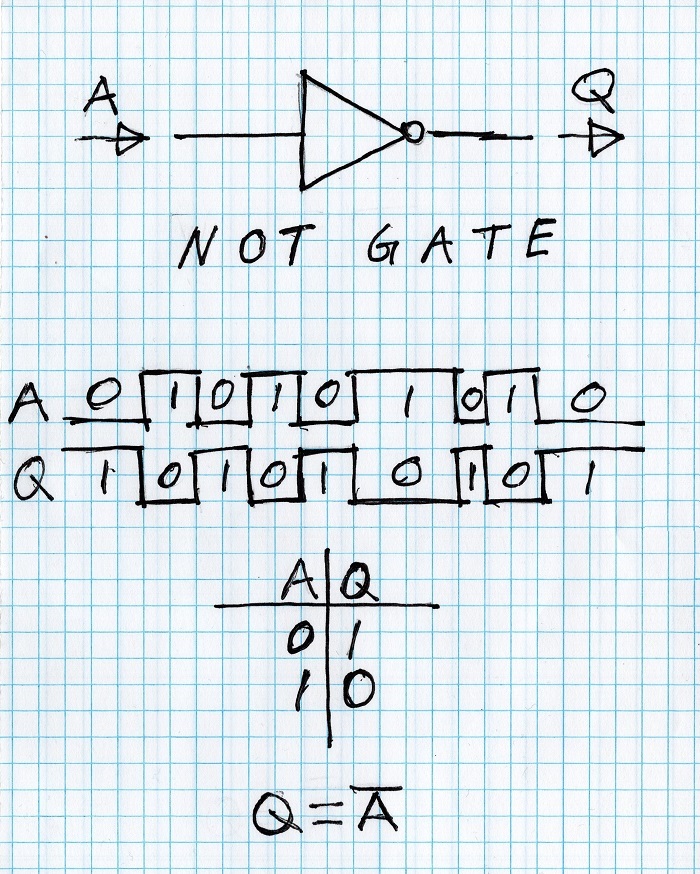 A Q
NOT GATE
A 0 1 0 1 0 1 0 1 0
Q 1 0 1 0 1 0 1 0 1
A Q
0 1
1 0
Q = A̅